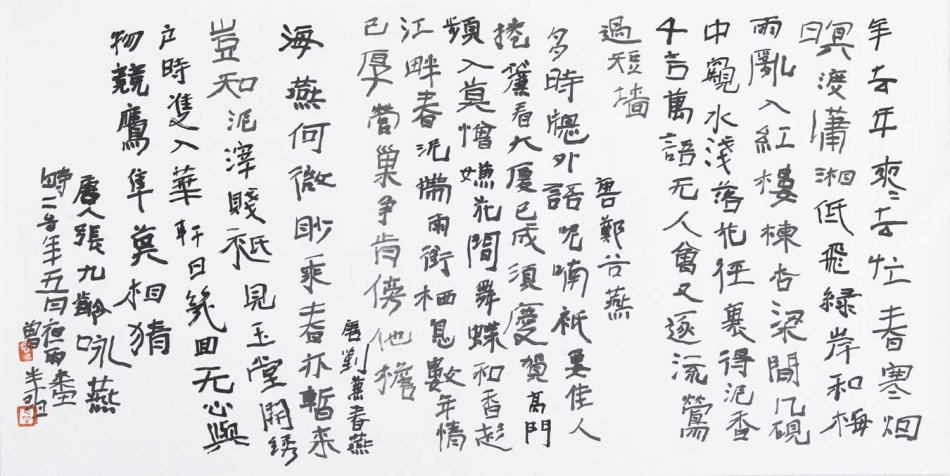 年去年來〻去忙春寒烟
暝渡瀟湘低飛綠岸和梅
雨亂入紅樓棟杏梁閒几硯
中窺水淺落花徑裏得泥香
千言萬語无人會又逐流鶯
過短墻
唐鄭谷燕
多時牕外語呢喃祇要佳人
捲簾看大廈已成須慶賀高門
頻入莫憎嫌花間舞蝶和香趁
江畔春泥帶雨銜栖息數年情
已厚營巢爭肯傍他檐
唐劉兼春燕
海燕何微眇乘春亦暫來
豈知泥滓賤祇見玉堂開綉
户時雙入華軒日幾回无心與
物競鷹隼莫相猜
唐人張九齡咏燕
年五月夜雨